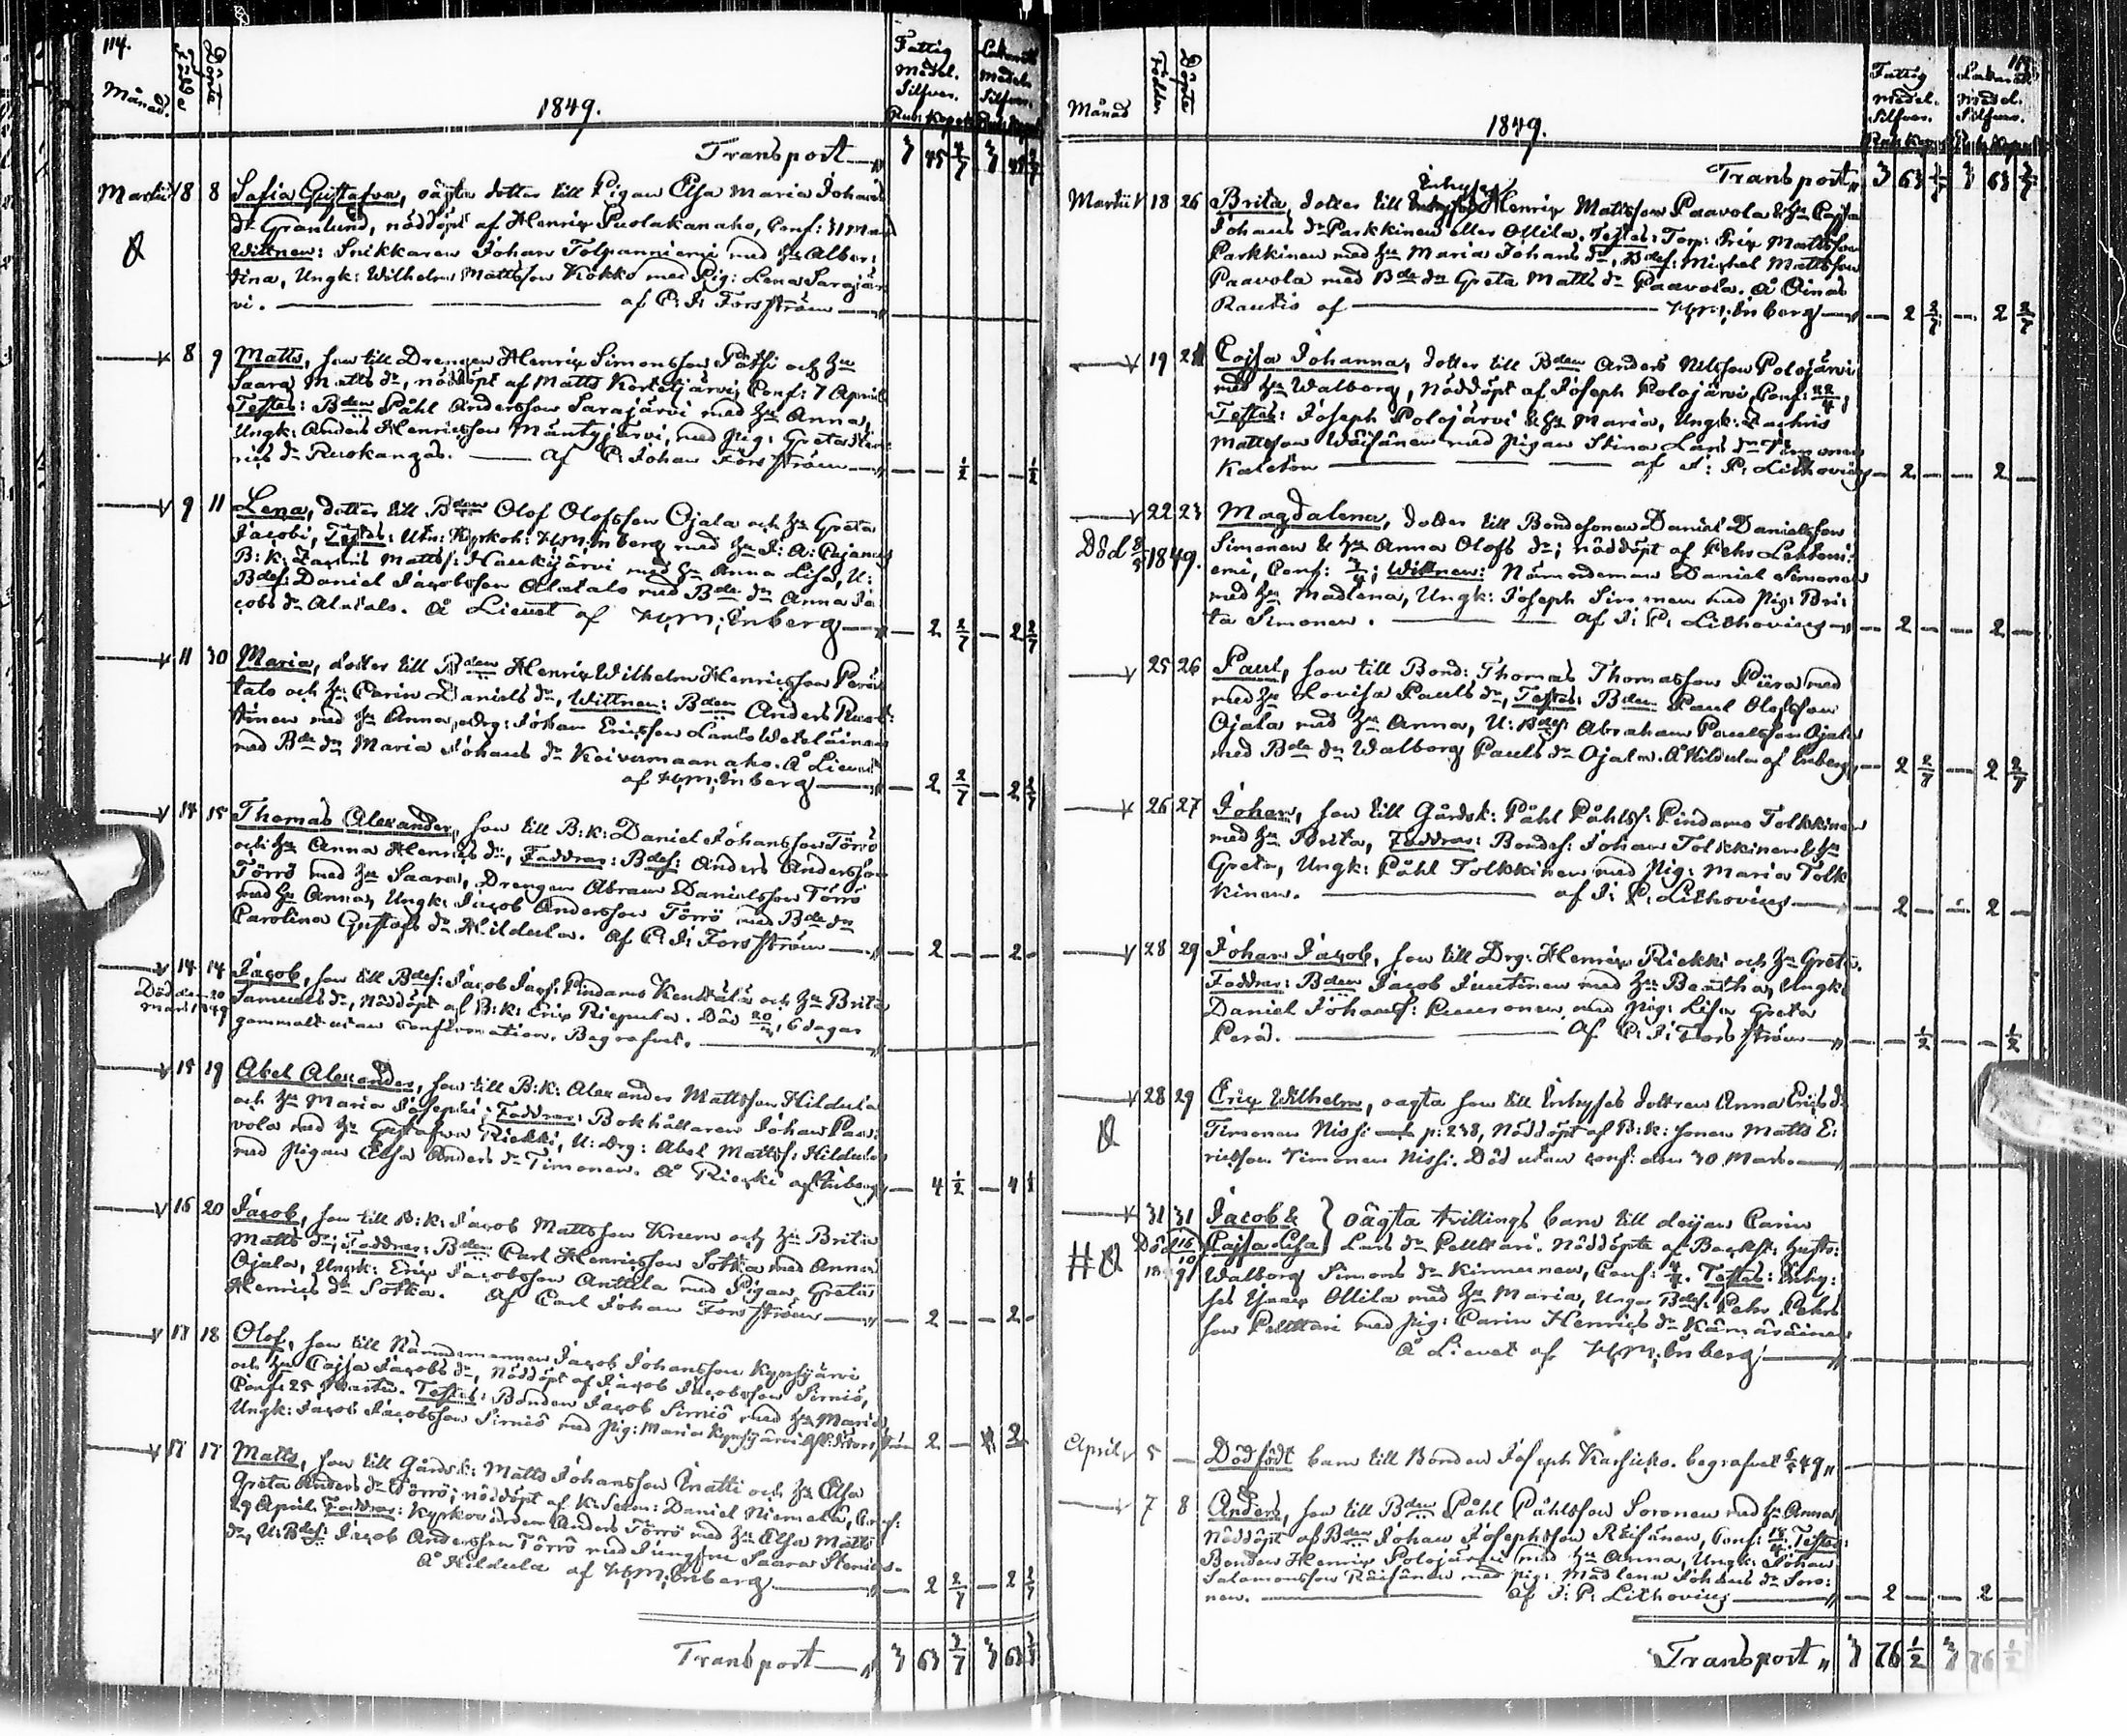 114.
Månad.
Födde
Döpte
1849.
Fattig
Medel.
Silfver.
Rub. Kopek
Medel.
Silfver.
Transport 3 45 3 45
Martii 8 8 Safia Gustafva, oägta dotter till Pigan Elsa Maria Johans
dr Granlund, nöddöpt af Henrix Puolakanaho, Conf: 31 Mars
Wittnen: Snikkaren Johan Tolpanniemi med Hu Alber:
tina, Ungk: Wilhelm Mattsson Kokko med Pig: Lena Sarajär
vi. af C. J. Forsström
8 9 Matts, son till Drengen Henrix Simonsson Pätsi och Hu
Saara Matts dr, nöddöpt af Matts Kortetjärvi, Conf: 7 April
Testes: Bden Påhl Andersson Sarajärvi med Hu Anna,
Ungk: Anders Henricsson Mäntyjärvi, med Pig: Greta Hen
rics dr Ruokangas. af C. Johan Forsström — — ½ — — ½
9 11 Lena, dotter till Bden Olof Olofsson Ojala och Hu Greta
Jacobi, Testes: Enberg med Hu
B: k: Zacris Matts: Haukijärvi med Hu Anna Lisa, U:
Bdes: Daniel Jacobsson Alatalo med Bde dr Anna Ja
cobs dr Alatalo. Å Lievet af Enberg — 2 2/7 — 2 2/7
11 30 Maria, dotter till Bden Henrix Wilhelm Henricsson Perä
talo och Hu Carin Daniels dr, Wittnen: Bden Anders
tinen med Hu Anna, Drg: Johan Ericsson Läms
med Bde dr Maria Johans dr Koivumaanaho. Å Lievet
af Enberg — 2 2/7 — 2 2/7
14 15 Thomas Alexander, son till B: k: Daniel Johansson Törrö
och Hu Anna Henrics dr, Faddrar: Bdes: Anders Andersson
Törrö med Hu Saara, Drengen Abram Danielsson Törrö
med Hu Anna, Ungk: Jacob Andersson Törrö med Bde dr
Carolina Gustafs dr Hildula. af C. J. Forsström — 2 — — 2 —
14 14 Jacob, son till Bdes: Jacob Jacs: Pindams Kenttälä och Hu Brita
Död den 20 Samuels dr, Nöddöpt af B: k: Erix Riepula. Död 20/3, 6 dagar
mars 1849 gammalt utan Confirmation. Begrafvet.
15 19 Abel Alexander, son till B: k: Alexander Mattsson Hildula
och Hu Maria Josephi; Faddrar: Bokhållaren Johan Paa:
vola med Hu Gustafva Riekki, U: Drg: Abel Matts: Hildula
med pigan Elsa Anders dr Timonen. Å Riekki af Enberg — 4 ½ — 4 ½
16 20 Jacob, son till B: k: Jacob Mattsson och Hu Brita
Matts dr; Faddrar: Bden Carl Henricsson Sotka med Anna
Ojala, Ungk: Erix Jacobsson Anttila med Pigan Greta
Henrics dr Sotka. af Carl Johan Forsström — 2 — — 2 —
17 18 Olof, son till Nämndemannen Jacob Johansson Kynsijärvi
och Hu Cajsa Jacobs dr, Nöddöpt af Jacob Jacobsson Sirniö,
Conf: 25 Martii. Testes: Bonden Jacob Sirniö med Hu Maria,
Ungk: Jacob Jacobsson Sirniö med Pig: Maria Kynsijärvi — 2 — 2
17 17 Matts, son till Gårdsk: Matts Johansson Määtti och Hu Elsa
Greta Anders dr Törrö; nöddöpt af K: Sexm: Daniel Niemelä, Conf:
29 April. Faddrar: Kyrkovärden Anders Törrö med Hu Elsa Matts
dr, U: Bdes: Jacob Andersson Törrö med Jungfru Saara
Å Hildula af Enberg — 2 2/7 — 2 2/7
Transport 3 63 2/7 3 63
Månad
Födde
Döpte
1849.
Fattig
medel.
Silfver.
medel.
Silfver.
Transport 3 63 3 63 2/7
Martii 18 26 Brita, dotter till Inhyses Henrix Mattsson Paavola & Hu Cajsa
Johans dr Parkkinen eller Ollila. Testes: Torp: Erix Mattsson
Parkkinen med Hu Maria Johans dr, Bdes: Michel Mattsson
Paavola med Bde dr Greta Matts dr Paavola. Å Oinas
Rautio af Enberg — 2 2/7 — 2 2/7
19 21 Cajsa Johanna, dotter till Bden Anders Nilsson Polojärvi
med Hu Walborg, Nöddöpt af Joseph Polojärvi, Conf: 22/4;
Testes: Joseph Polojärvi & Hu Maria, Ungk: Zachris
Mattsson Wäisänen med pigan Stina Lars dr
af J: P: Lithovius — 2 — — 2 —
22 23 Magdalena, dotter till Bondesonen Daniel Danielsson
Död 1849. Simonen & Hu Anna Olofs dr; nöddöpt af Pehr Lehtoni:
emi, Conf: Wittnen: Nämndeman Daniel Simonen
med Hu Madlena, Ungk: Joseph Simonen med Pig: Bri:
ta Simonen. af J: P: Lithovius — 2 — — 2 —
25 26 Paul, son till Bond: Thomas Thomasson Piira med
med Hu Lovisa Pauls dr, Testes: Bden Paul Olofsson
Ojala med Hu Anna, U: Bdes: Abraham Paulsson Ojala
med Bde dr Walborg Pauls dr Ojala. Å Hildula af Enberg — 2 2/7 — 2 2/7
26 27 Johan, son till Gårdsk: Påhl Påhlss: Pindams Tolkkinen
med Hu Brita, Faddrar: Bondes: Johan Tolkkinen & Hu
Greta, Ungk: Påhl Tolkkinen med Pig: Maria Tolk
kinen. af J: P: Lithovius — 2 — — 2 —
28 29 Johan Jacob, son till Drg: Henrix Riekki och Hu Greta.
Faddrar: Bden Jacob Juntinen med Hu Beatha, Ungk:
Daniel Johanss: med Pig: Lisa Greta
Perä. af C: J: Forsström — — ½ — — ½
28 29 Erix Wilhelm, oagta son till Inhyses dottren Anna Erics dr
Timonen Nissi p: 238, Nöddöpt af B: k: sonen Matts E:
ricsson Timonen Nissi. Död utan conf: den 30 Mars.
31 31 Jacob & } oägta tvillings barn till deijan Carin
Cajsa Lisa } Lars dr Pelttari. Nöddöpte af Backst: hustr:
Walborg Simons dr Kinnunen, Conf: Testes: Inhy:
ses Isaac Ollila med Hu Maria, Unga Bdes: Pehr Pehrs
son Pelttari med pig: Carin Henrics dr Kämäräinen
Å Lievet af Enberg
April 5 — Dödfödt barn till Bonden Joseph Karsikko. begrafvet
7 8 Anders, son till Bden Påhl Påhlsson Soronen med Hu Anna,
Nöddöpt af Bden Johan Josephsson Räisänen, Conf: Testes:
Bonden Henrix Polojärvi med Hu Anna, Ungk: Johan
Salamonsson Räisänen med pig: Madlena Johans dr Soro:
nen. af J: P: Lithovius — 2 — — 2 —
Transport 3 76 ½ 3 76 ½